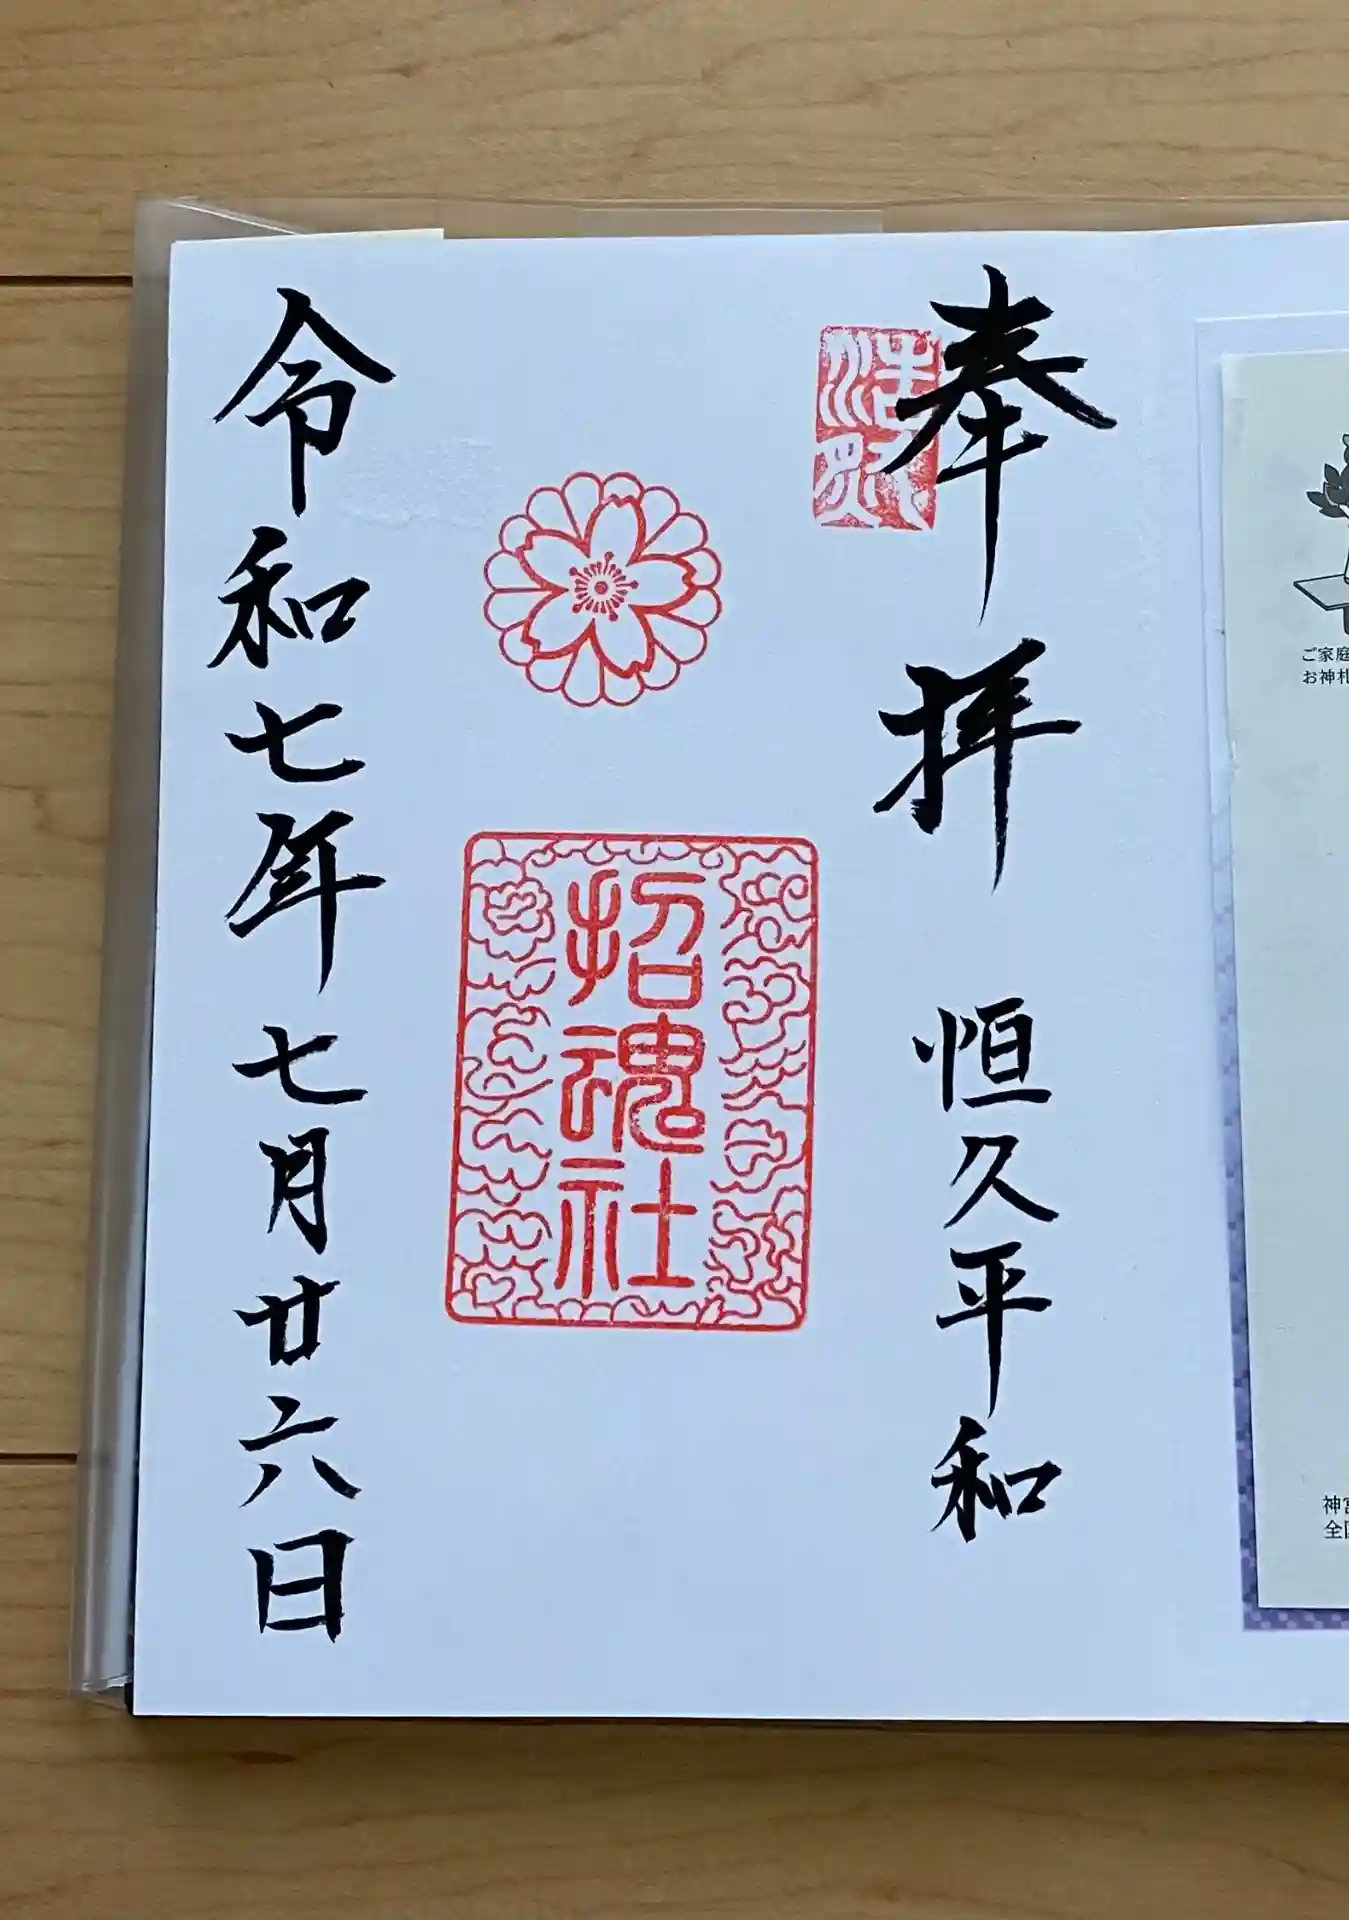 奉拝 恒久平和
浩然
招魂社
令和七年七月廿六日
ご家庭
お神札
神宮
全国